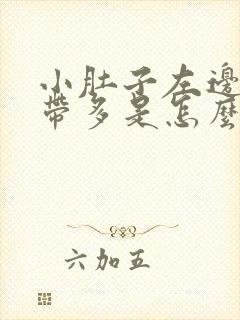 小肚子左邊
帶多是怎麼
六加五